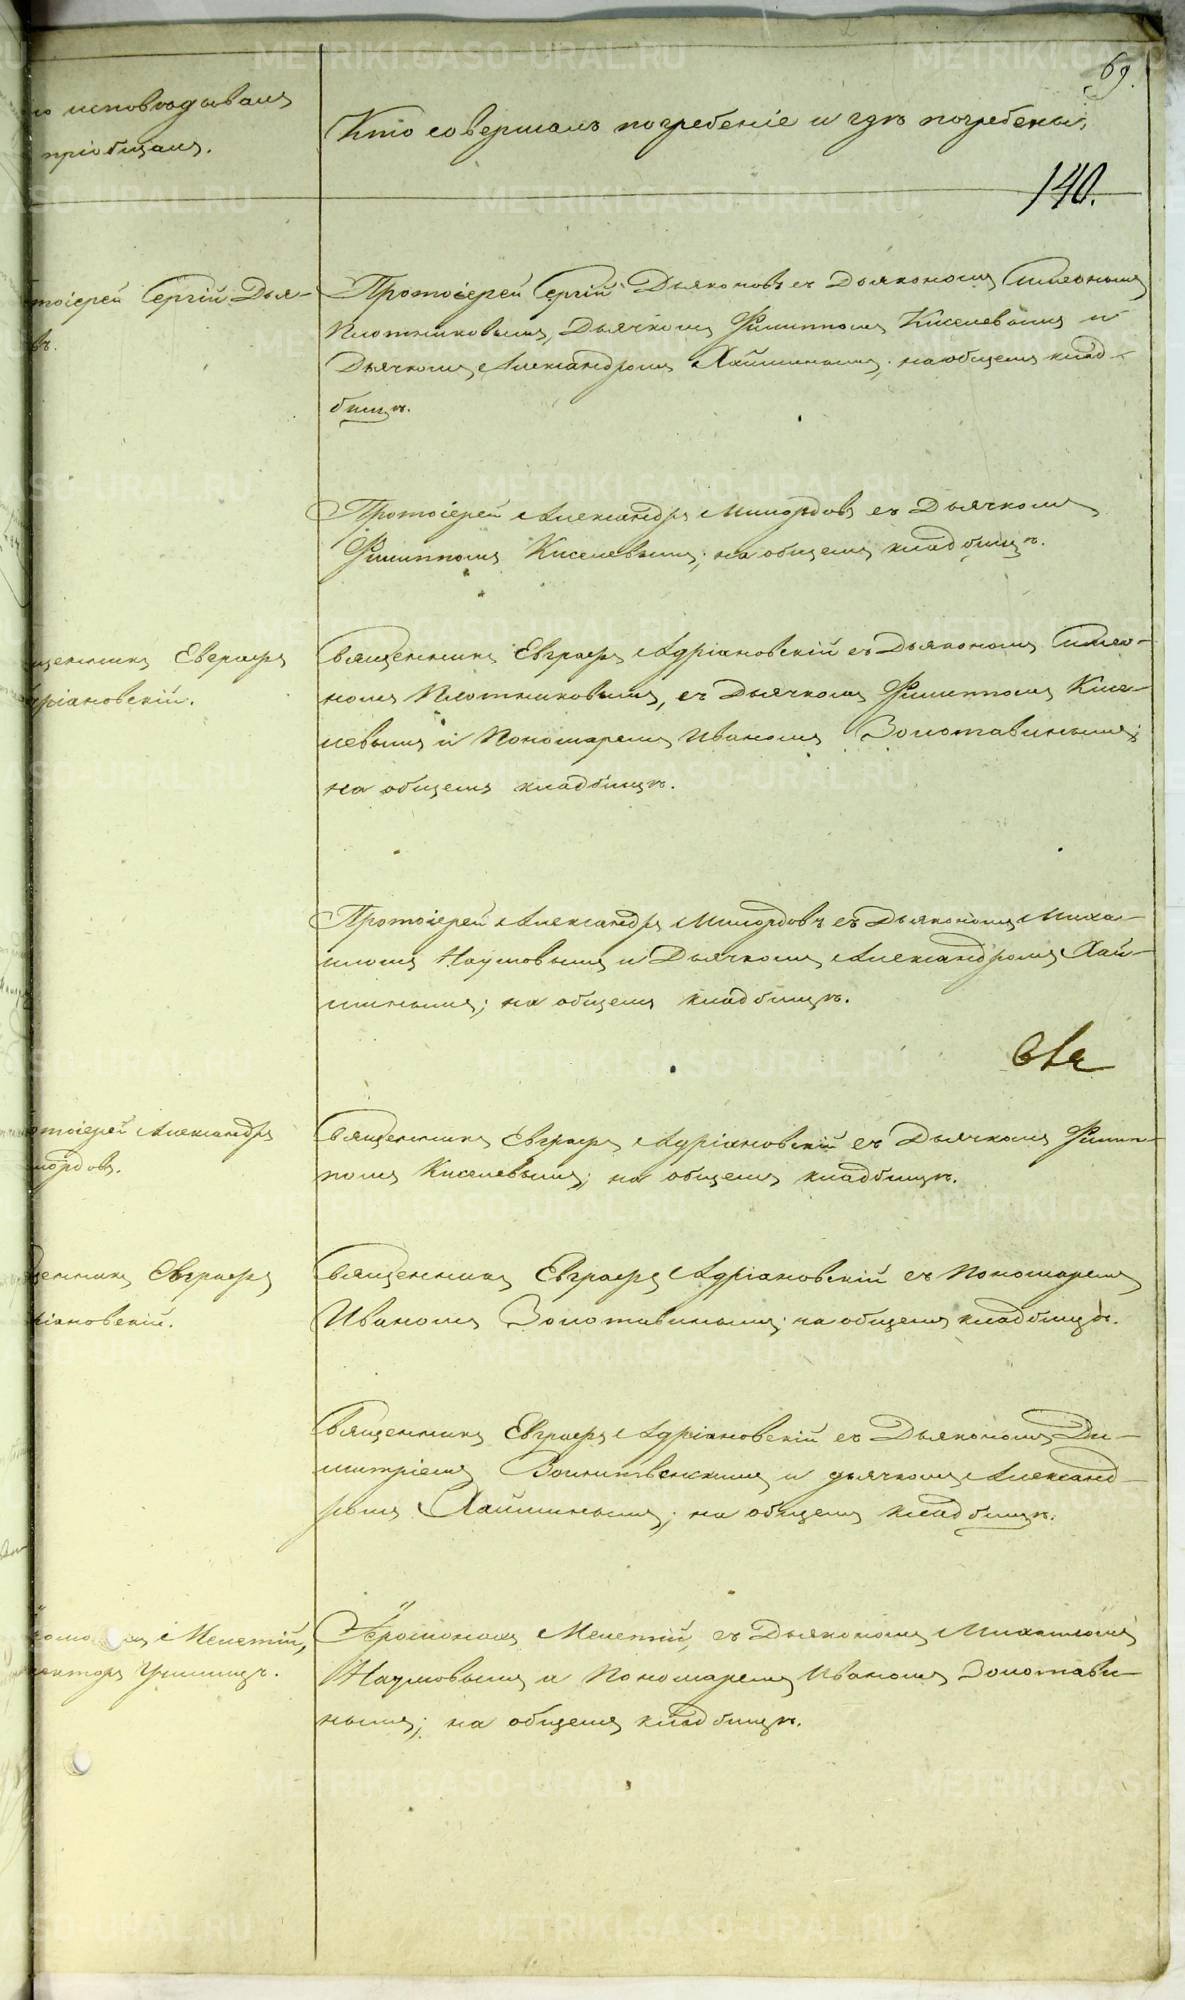 69.
исповѣдывалъ
пріобщалъ.
Кто совершалъ погребеніе и гдѣ погребены.
140.
Сергій Дья-
въ.
Протоіерей Сергій Дьяконовъ съ Дьякономъ Симеономъ
Плотниковымъ, Дьячкомъ Филиппомъ Киселевымъ и
Дьячкомъ Александромъ Хайминымъ; на общемъ клад-
бищѣ.
Протоіерей Александръ Милордовъ съ Дьячкомъ
Филиппомъ Киселевымъ; на общемъ кладбищѣ.
щенникъ Евграфъ
дріановскій.
Священникъ Евграфъ Адріановскій съ Дьякономъ Симео-
номъ Плотниковымъ, съ Дьячкомъ Филиппомъ Кисе-
левымъ и Пономаремъ Иваномъ Золотавинымъ;
на общемъ кладбищѣ.
Протоіерей Александръ Милордовъ съ Дьякономъ Миха-
иломъ Наумовымъ и Дьячкомъ Александромъ Хай-
минымъ; на общемъ кладбищѣ.
тоіерей Александръ
лордовъ.
Священникъ Евграфъ Адріановскій съ Дьячкомъ Филип-
помъ Киселевымъ; на общемъ кладбищѣ.
щенникъ Евграфъ
ріановскій.
Священникъ Евграфъ Адріановскій съ Пономаремъ
Иваномъ Золотавинымъ; на общемъ кладбищѣ.
Священникъ Евграфъ Адріановскій съ Дьякономъ Ди-
митріемъ Воинственскимъ и дьячкомъ Александ-
ромъ Хайминымъ; на общемъ кладбищѣ.
Мелетій,
Училищъ.
Іеромонахъ Мелетій, съ Дьякономъ Михаиломъ
Наумовымъ и Пономаремъ Иваномъ Золотави-
нымъ; на общемъ кладбищѣ.
METRIKI.GASO-URAL.RU